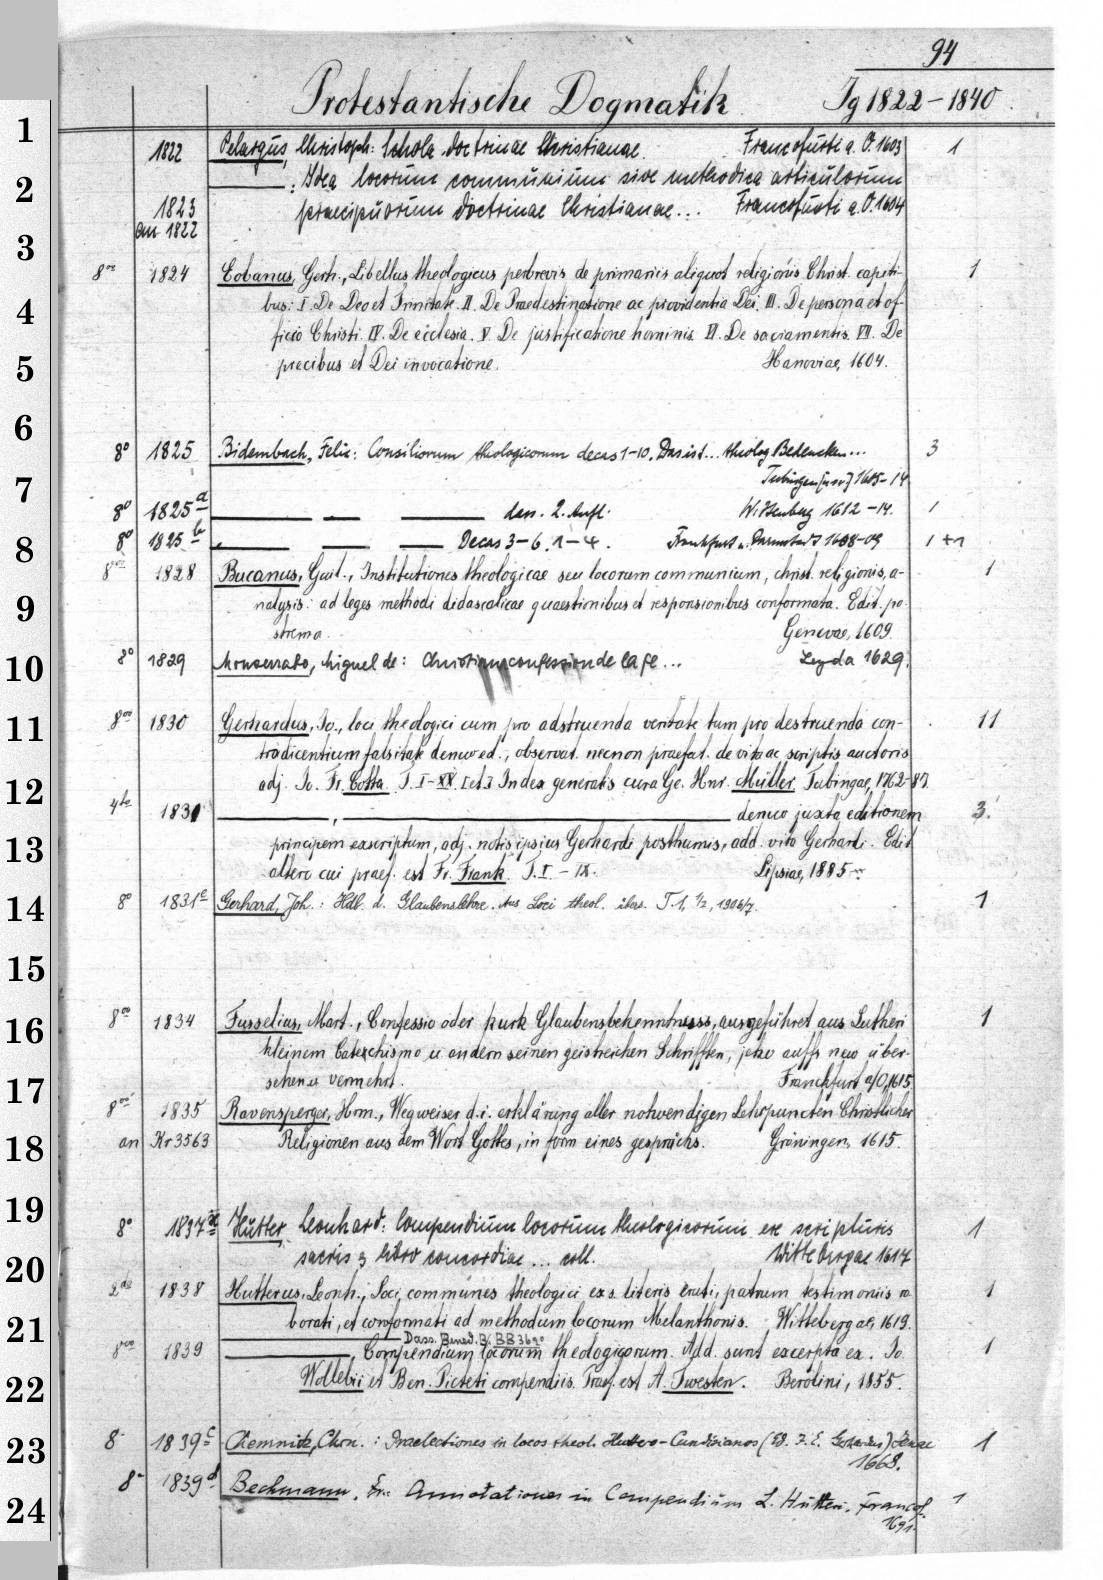 94
Protestantische Dogmatik Ig 1822-1840
1822 Pelargus, Christoph: Schola doctrinae Christianae. Francofurti a. O. 1603 1
: Idea locorum communium sive methodica articulorum
1823 praecipuorum doctrinae Christianae... Francofurti a. O. 1604
an 1822
8vo 1824 Eobanus, Gerh., Libellus theologicus perbrevis de primariis aliquot religionis Christ. capiti- 1
bus: I. De Deo et Trinitate. II. De Praedestinatione ac providentia Dei. III. De persona et of-
ficio Christi. IV. De ecclesia. V. De justificatione hominis. VI. De sacramentis. VII. De
precibus et Dei invocatione. Hanoviae, 1604.
8° 1825 Bidembach, Felix: Consiliorum theologicorum decas 1-10. Das ist... theolog Bedencken... 3
Tübingen [usw] 1605-14
8° 1825a dass. 2. Aufl. Wittenberg 1612-14. 1
8° 1825b Decas 3-6. 1-4. Frankfurt u. Darmstadt 1608-09 1+1
8vo 1828 Bucanus, Guil., Institutiones theologicae seu locorum communium, christ. religionis, a- 1
nalysis: ad leges methodi didascalicae quaestionibus et responsionibus conformata. Edit. po-
strema. Genevae, 1609.
8° 1829 Monserrato, Miguel de: Christiana confession de la fe... Leyda 1629.
8vo 1830 Gerhardus, Jo., loci theologici cum pro adstruenda veritate tum pro destruenda con- 11
tradicentium falsitate denuo ed., observat. necnon praefat. de vita ac scriptis auctoris
adj. Jo. Fr. Cotta. T. I-XX [et] Index generalis cura Ge. Hnr. Müller. Tubingae, 1762-87.
4to 1831 , denuo juxta editionem 3.
principem exscriptum, adj. notis ipsius Gerhardi posthumis, add. vita Gerhardi. Edit
altera cui praef. est Fr. Frank. T. I-IX. Lipsiae, 1885
8° 1831c Gerhard, Joh.: Hdb. d. Glaubenslehre. Aus Loci theol. übers. T. 1, 1/2, 1906/7. 1
8vo 1834 Fusselius, Mart., Confessio oder kurk Glaubensbekenntnuss, ausgeführet aus Lutheri 1
kleinem Catechismo u andern seinen geistreichen Schrifften, jetzo auffs new über-
sehen u vermehrt. Franckfurt a/O, 1615
8vo 1835 Ravensperger, Hrm., Wegweiser d.i. erklärung aller nohwendigen Lehrpuncten Christlicher
an Kr 3563 Religionen aus dem Wort Gottes, in form eines gesprächs. Gröningen, 1615.
8° 1837 Hutter, Leonhard: Compendium locorum theologicorum ex scripturis 1
sacris & libro concordiae ... coll. Wittebergae 1617
2do 1838 Hutterus, Leonh., Loci communes theologici ex s. literis eruti, patrum testimoniis ro- 1
borati, et conformati ad methodum locorum Melanthonis. Wittebergae, 1619.
Dass. Bened. Bi. BB 36
8vo 1839 , Compendium locorum theologicorum. Add. sunt excerpta ex. Jo. 1
Wollebii et Ben. Picteti compendiis. Praef. est A. Twesten. Berolini, 1855.
8° 1839c Chemnitz, Chrn.: Praelectiones in locos theol. Huttero-Cundisianos (Ed. J. E. Gerhardus) Jenae 1
1668.
8° 1839d Bechmann, Fr.: Annotationes in Compendium L. Hutteri. Francof. 1
1691.
1
2
3
4
5
6
7
8
9
10
11
12
13
14
15
16
17
18
19
20
21
22
23
24